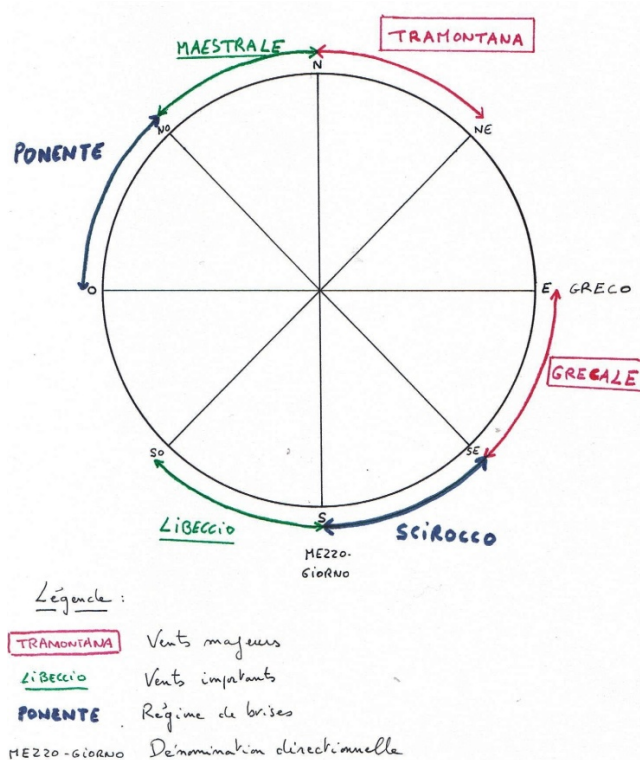 TRAMONTANA
MAESTRALE
N
NO
NE
PONENTE
O
E GRECO
GRECALE
SO
SE
S
LIBECCIO
SCIROCCO
MEZZO-
GIORNO
Légende :
TRAMONTANA Vents majeurs
LIBECCIO Vents importants
PONENTE Régime de brises
MEZZO-GIORNO Dénomination directionnelle